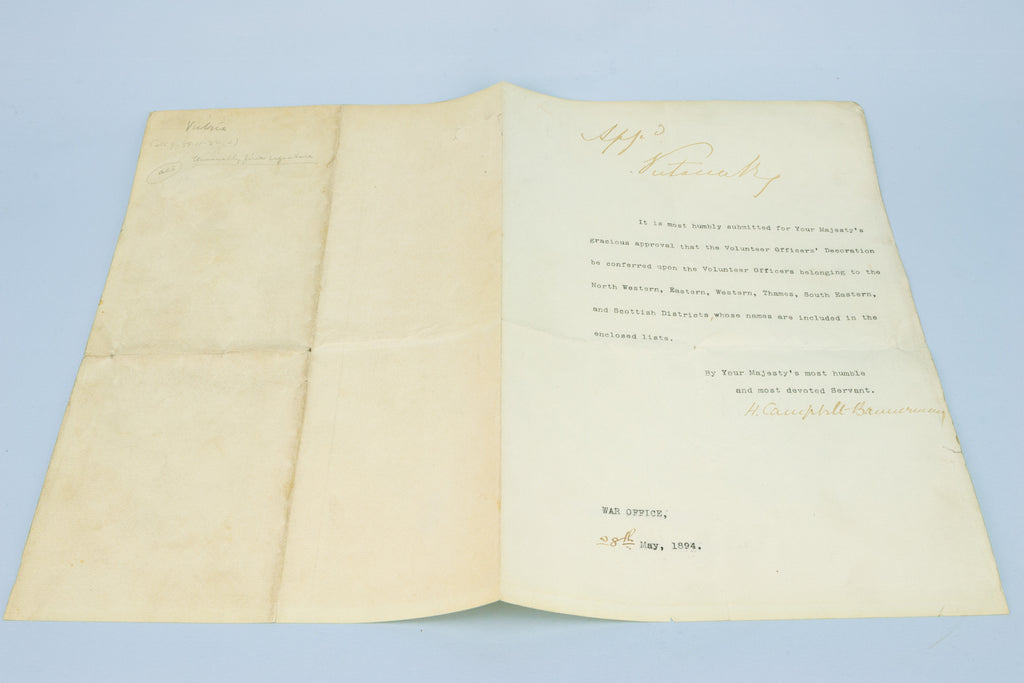 Victoria
Unusually fine signature
App.d
Victoria RI
It is most humbly submitted for Your Majesty's
gracious approval that the Volunteer Officers' Decoration
be conferred upon the Volunteer Officers belonging to the
North Western, Eastern, Western, Thames, South Eastern,
and Scottish Districts, whose names are included in the
enclosed lists.
By Your Majesty's most humble
and most devoted Servant.
H. Campbell-Bannerman
WAR OFFICE,
28th May, 1894.